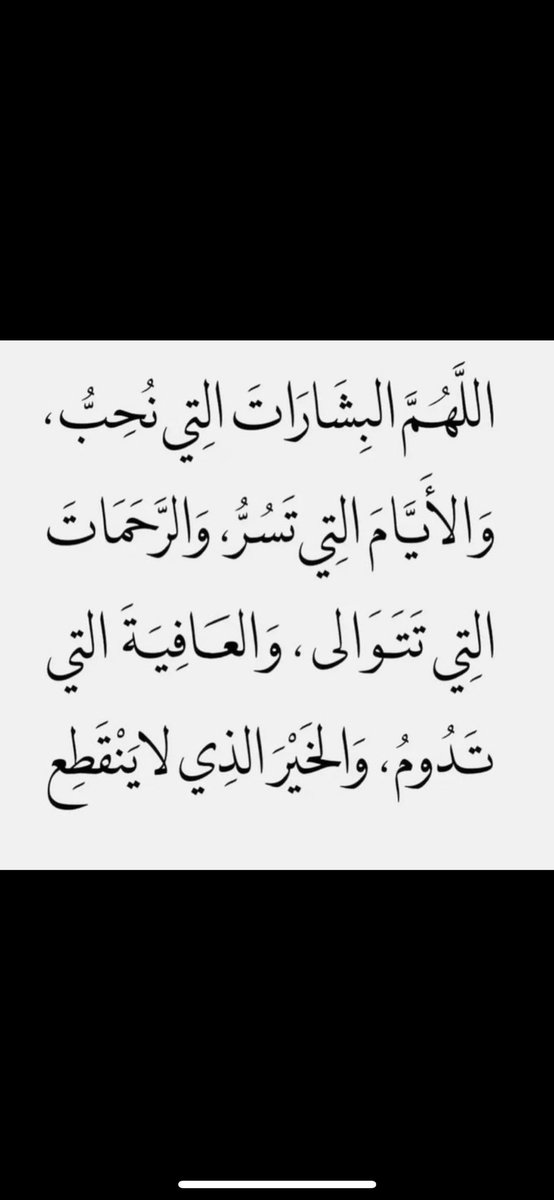 اللَّهُمَّ البِشَارَاتَ التِي نُحِبُّ،
وَالأَيَّامَ التِي تَسُرُّ، وَالرَّحَمَاتَ
التِي تَتَوَالى، وَالعَافِيَةَ التِي
تَدُومُ، وَالخَيْرَ الذِي لا يَنْقَطِع